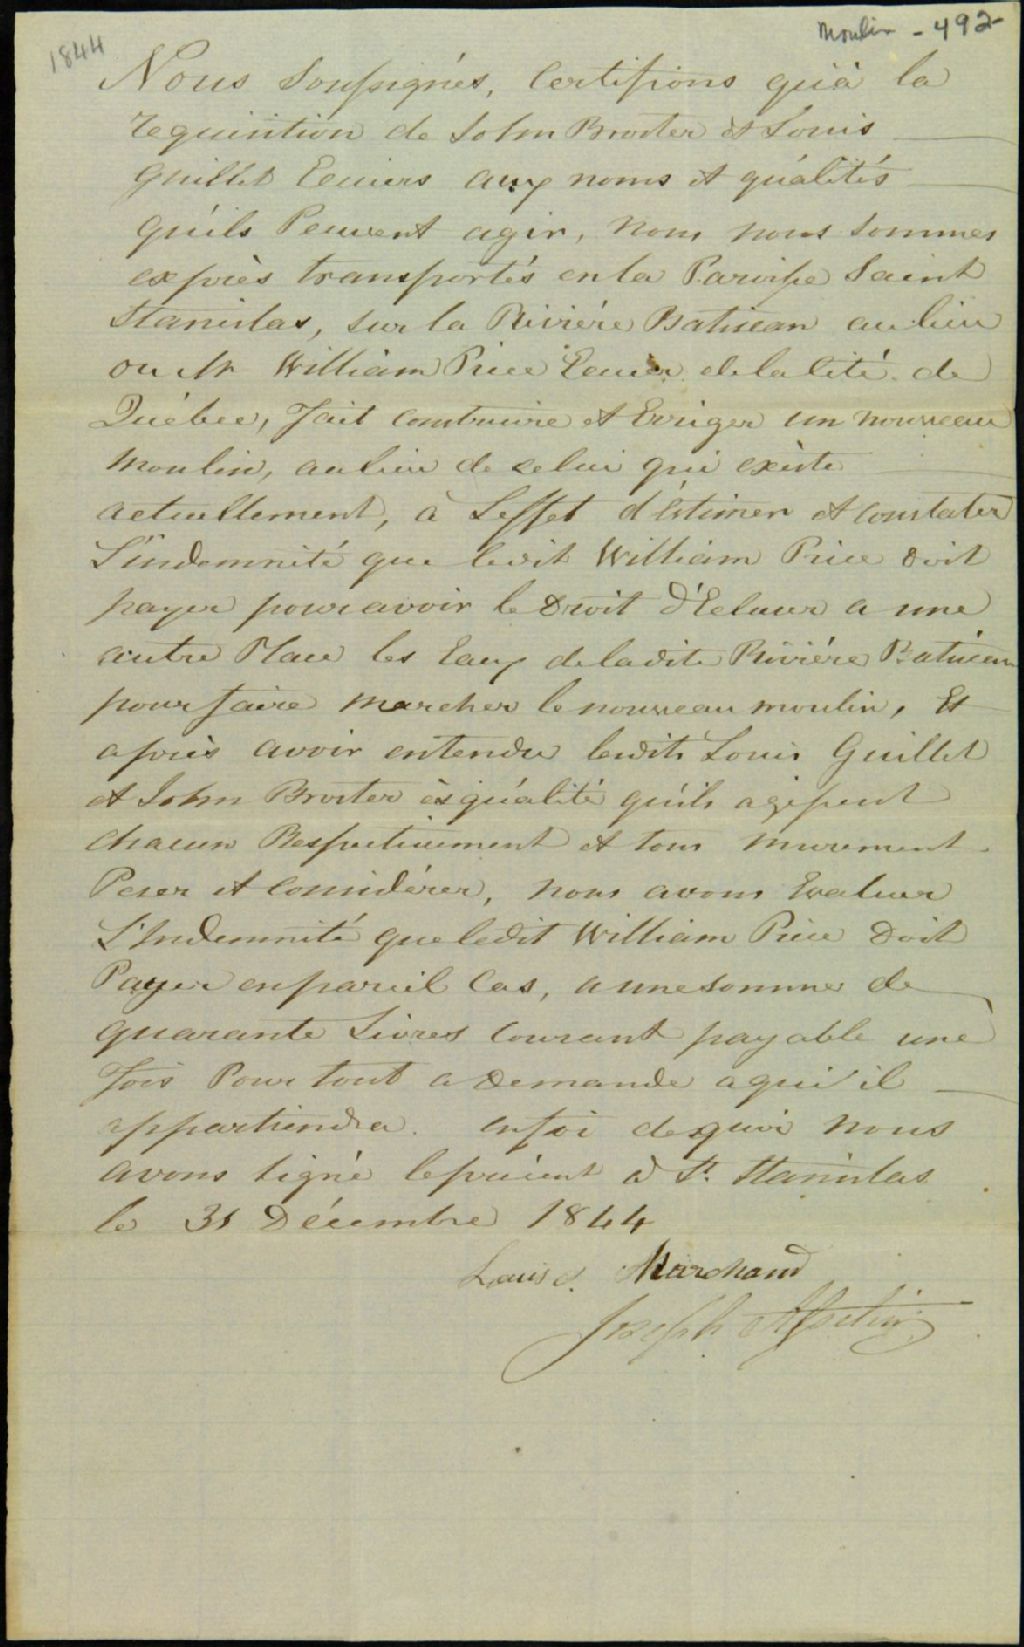 1844
Moulin - 492
Nous Soussignés, Certifions qu'à la
requisition de John Broster et Louis
Guillet Ecuiers aux noms et quálités
qu'ils Peuvent agir, nous nous sommes
exprès transportés en la Paroisse Saint
Stanislas, sur la Riviére Batiscan au lieu
ou Mr William Price Ecuier de la Cité de
Québec, fait construire et Erriger un nouveau
moulin, au lieu de celui qui existe
actuellement, à Leffet d'éstimer et constater
L'indemnité que ledit William Price doit
payer pour avoir le Droit d'Ecluser a une
autre Place les Eaux de ladite Riviére Batiscan
pour faire marcher le nouveau moulin, Et
aprés avoir entendu lesdits Louis Guillet
et John Broster ès quálité qu'ils agissent
chacun Respectivement et tous murement
Peser et Considérer, nous avons Evaluer
L'Indemnité que ledit William Price Doit
Payer en pareil Cas, a une somme de
quarante Livres courant payable une
fois Pour tout a demande a qui il
appartiendra. en foi de quoi nous
avons signé le présent à St. Stanislas
le 31 Décembre 1844
Louis Marchand
Joseph